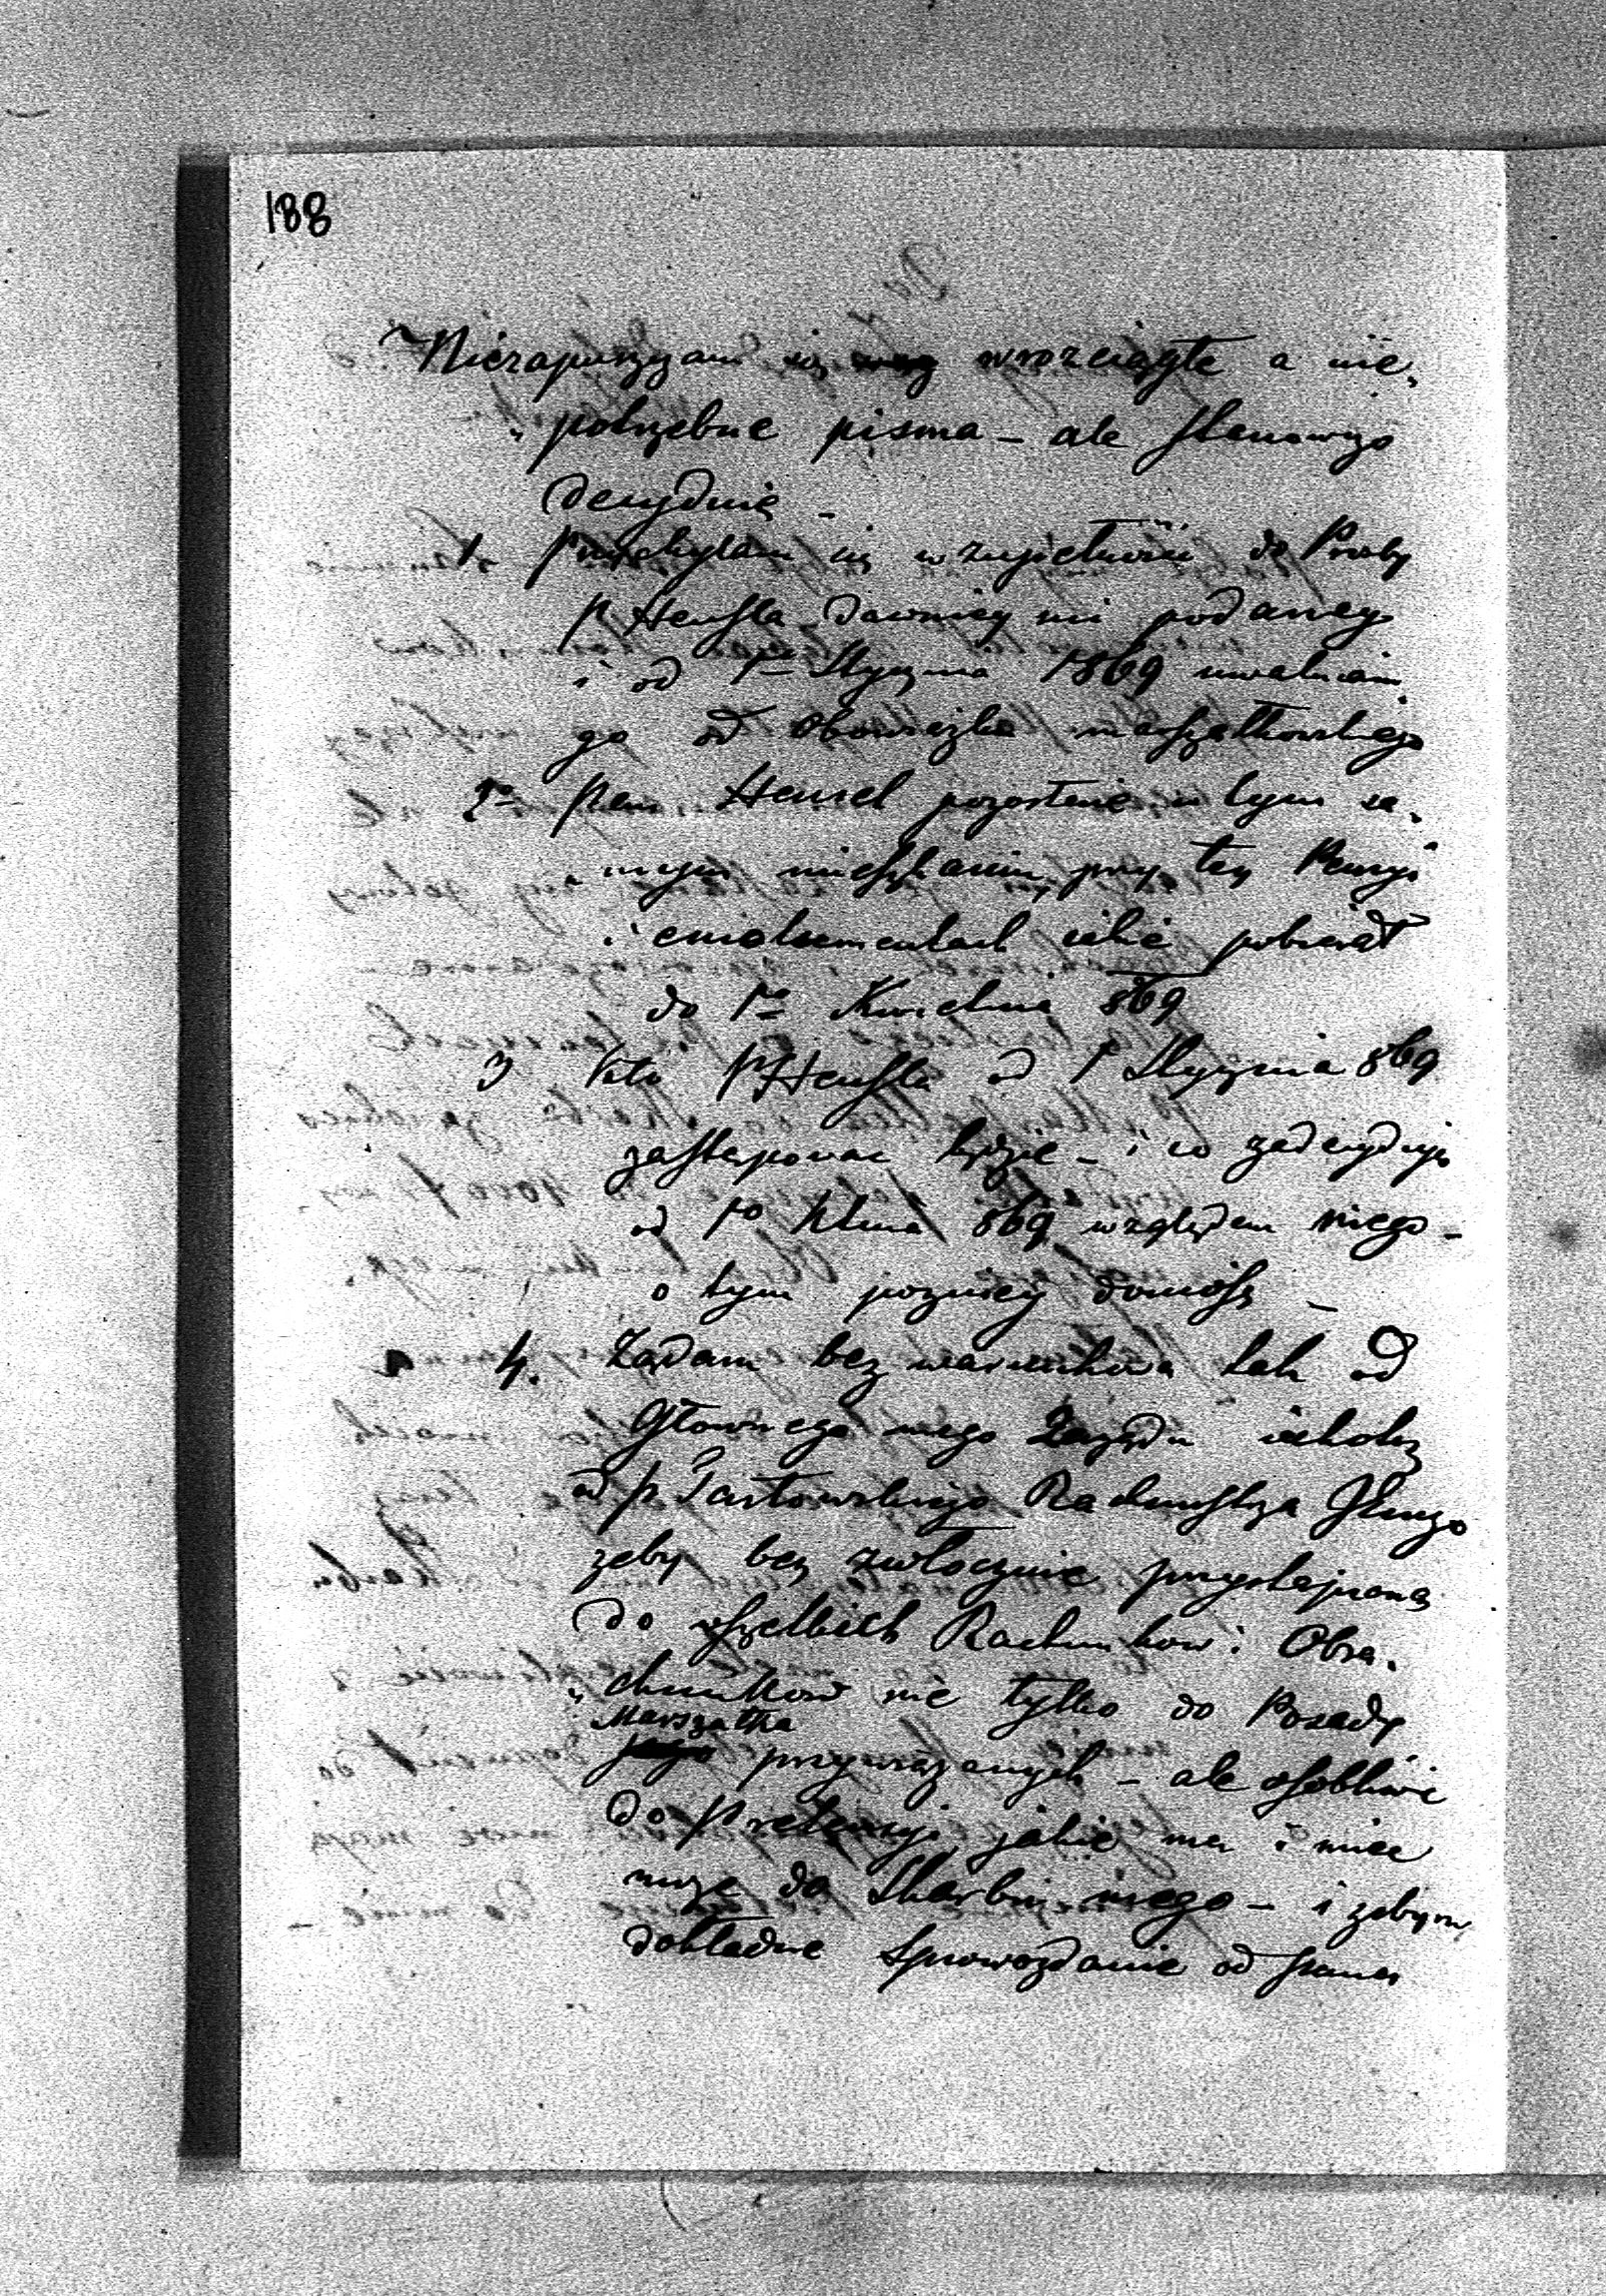 188
Niezapuszczam się wrozciągłe a nie„
„potrzebne pisma – ale stanowczo
decyduię –
1. Przychylam się w zupełności do Prosby
P Hensla dawniey mi podaney
i od 1go Stycznia 1869 uwalniam
go od Obowiązku marszałkowskiego
2o Pan Hensel pozostanie w tym sa„
„mym mieszkaniu, przy tey Pensyi
i emolumentach iakie pobierał
do 1go Kwietnia 869
3 Kto P Hensla od 1 Stycznia 869
zastępować będzie – i co zadecyduję
od 1o Ktnia 869 względem niego –
o tym pozniey doniosę –
a 4. Żądam bez warunkowo tak od
Głownego mego Zarządu iakotez
od p Tartowskiego Rachmistrza
zeby bez zwłocznie przystąpiono
do wszelkich Rachunkow i Obra„
„chunkow nie tylko do Posady
Marszałka
przywiązanych – ale osobliwie
do Pretensyi, jakie ma i miec
może do Skarbu mego – i zebym
dokładne Sprawozdanie od